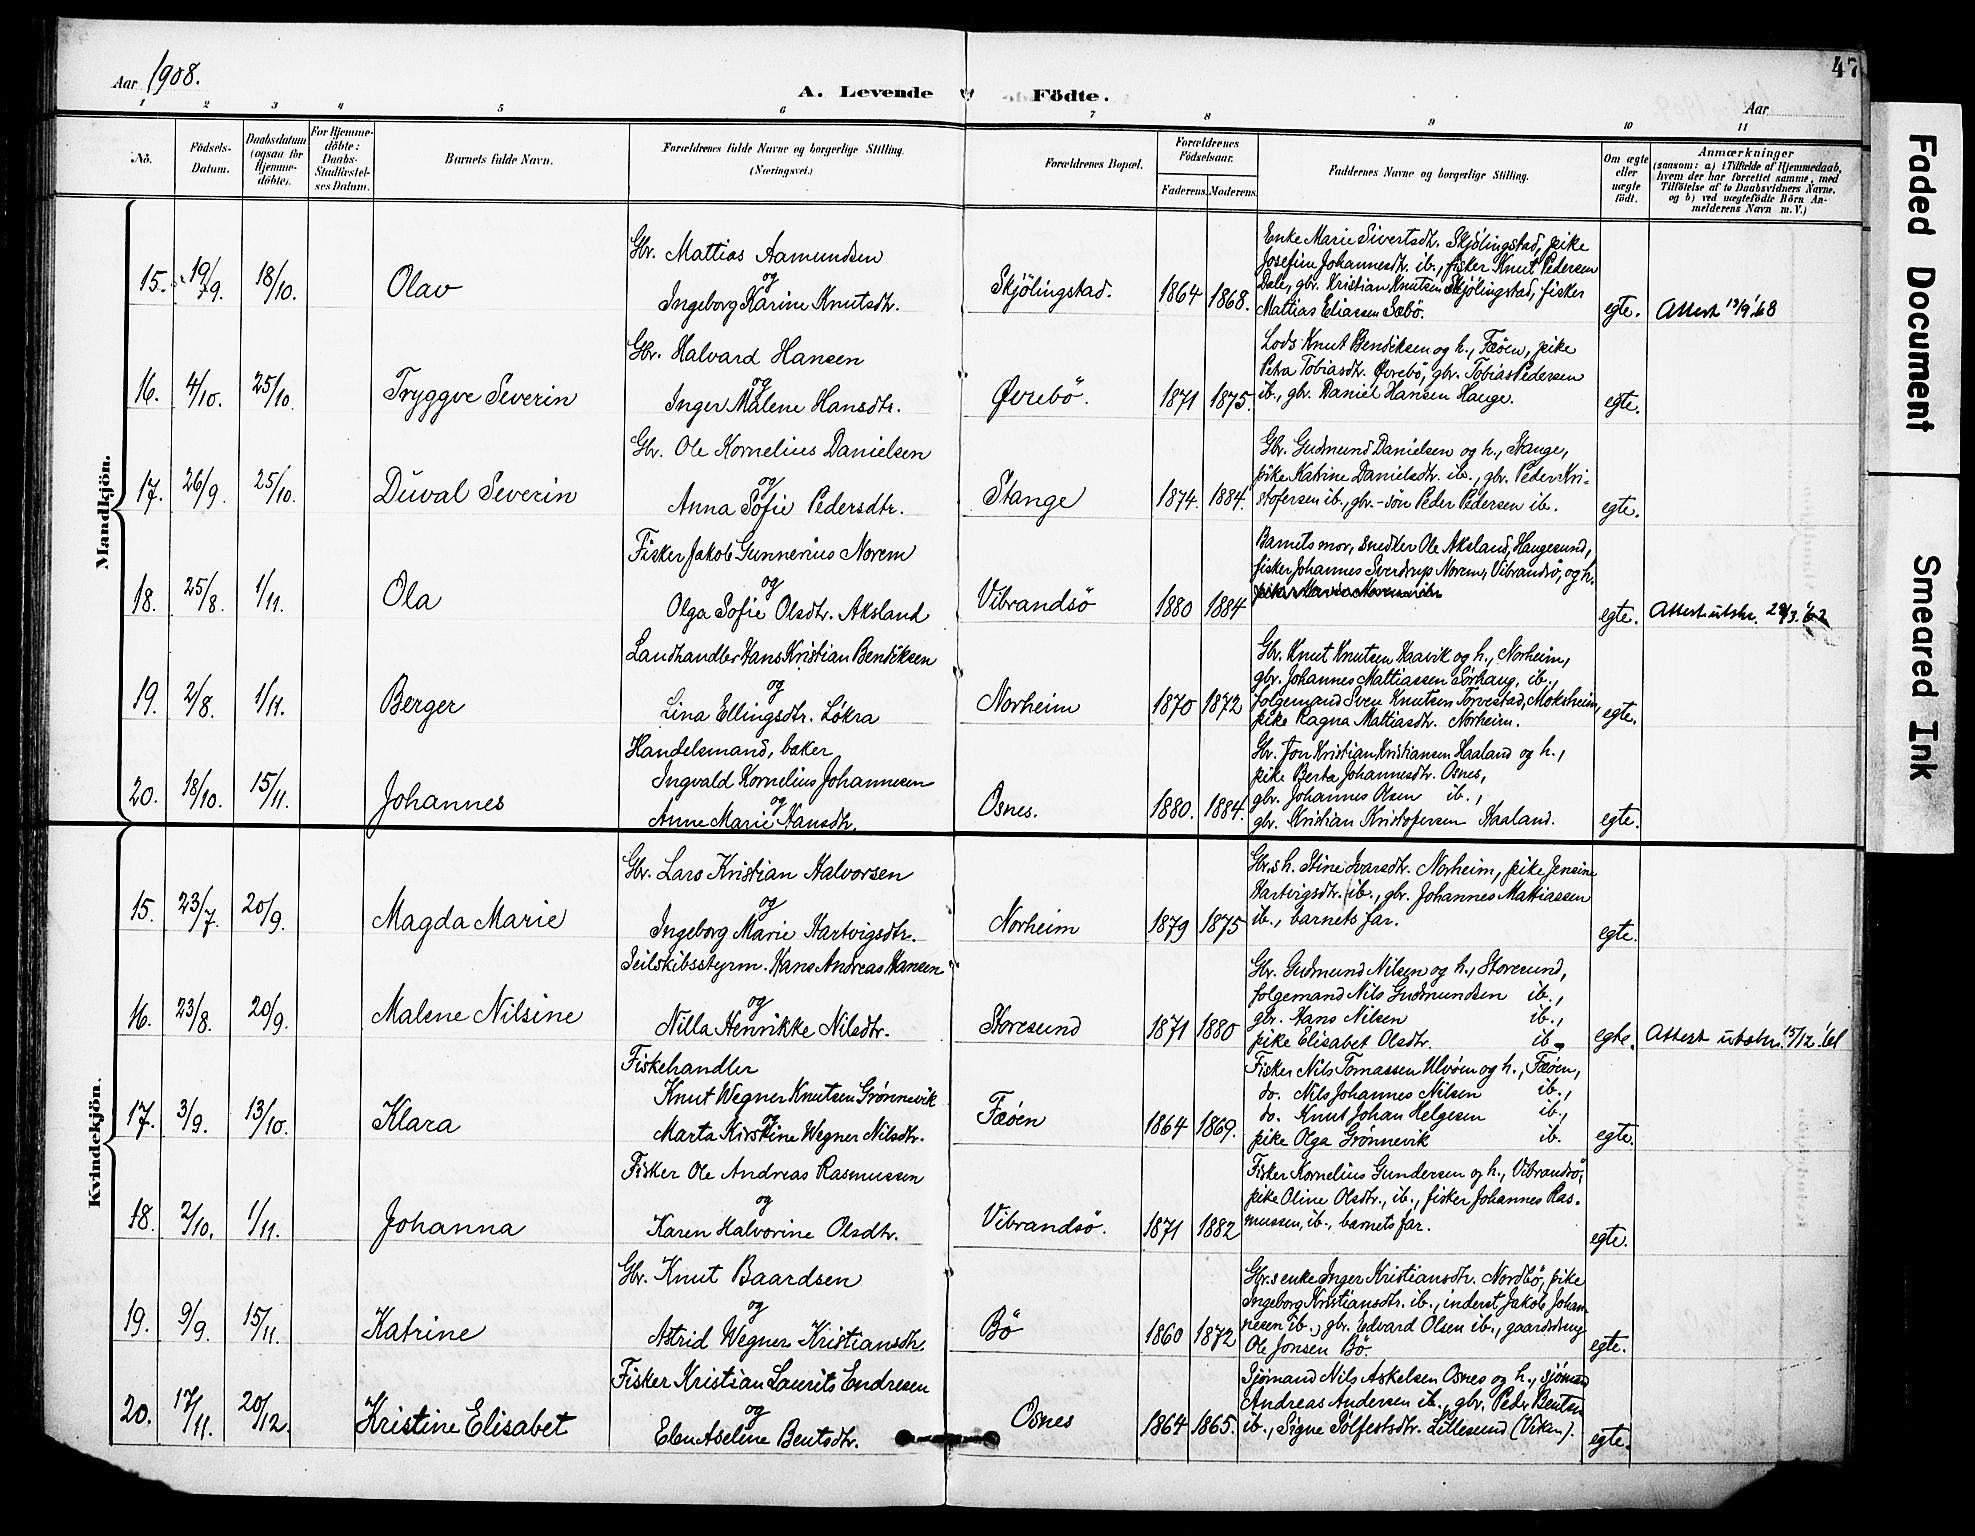 Aar 1908.
A. Levende Födte.
Aar
47
1 2 3 4 5 6 7 8 9 10 11
No.
Födsels-Datum.
Daabsdatum (ogsaa for Hjemme-döbte).
For Hjemme-döbte: Daabs-Stadfæstel-ses Datum.
Barnets fulde Navn.
Forældrenes fulde Navne og borgerlige Stilling. (Næringsvei.)
Forældrenes Bopæl.
Forældrenes Födselsaar.
Faderens. Moderens.
Faddernes Navne og borgerlige Stilling.
Om ægte eller uægte födt.
Anmærkninger
(saasom: a) i Tilfælde af Hjemmedaab,
hvem der har forrettet samme, med
Tilföielse af to Daabsvidners Navne.
og b) ved uægtefödte Börn An-
melderens Navn m. V.)
Mandkjön.
15. 19/9. 18/10. Olav
Gbr. Mattias Aamundsen
og
Ingeborg Karine Knutsdtr.
Skjölingstad. 1864 1868.
Enke Marie Sivertsdtr. Skjölingstad, pike
Josefine Johannesdtr. ib., fisker Knut Pedersen
Dale, gbr. Kristian Knutsen Skjölingstad, fisker
Mattias Eliassen Sæbö.
egte. Attest 12/9 '68
16. 4/10. 25/10. Tryggve Severin
Gbr. Halvard Hansen
og
Inger Malene Hansdtr.
Øvrebö. 1871 1875.
Lods Knut Bendiksen og h., Fæöen, pike
Petra Tobiasdtr. Øvrebö, gbr. Tobias Pedersen
ib., gbr. Daniel Hansen Hauge.
egte.
17. 26/9. 25/10. Düval Severin
Gbr. Ole Kornelius Danielsen
og
Anna Sofie Pedersdtr.
Stange 1874. 1884.
Gbr. Gudmund Danielsen og h., Stange,
pike Katrine Danielsdtr. ib., gbr. Peder Kri-
stofersen ib., gbr.-sön Peder Pedersen ib.
egte.
18. 25/8. 1/11. Ola
Fisker Jakob Gunnerius Norem
og
Olga Sofie Olsdtr. Aksland
Vibrandsö 1880 1884
Barnets mor, snedker Ole Aksland, Haugesund,
fisker Johannes Sverdrup Norem, Vibrandsö, og h.
egte. Attest utskr. 28/3. '62
19. 2/8. 1/11. Berger
Landhandler Hans Kristian Bendiksen
og
Lina Ellingsdtr. Løkra
Norheim 1870 1872
Gbr. Knut Knutsen Haavik og h., Norheim,
gbr. Johannes Mattiassen Sörhaug, ib.,
folgemand Sven Knutsen Torvestad, Moksheim,
pike Ragna Mattiasdtr. Norheim.
egte.
20. 18/10. 15/11. Johannes
Handelsmand, baker
Ingvald Kornelius Johannesen
og
Anne Marie Hansdtr.
Osnes. 1880. 1884.
Gbr. Jon Kristian Kristiansen Haaland og h.,
pike Berta Johannesdtr. Osnes,
gbr. Johannes Olsen ib.,
gbr. Kristian Kristofersen Haaland.
egte.
Kvindekjön.
15. 23/7. 20/9. Magda Marie
Gbr. Lars Kristian Halvorsen
og
Ingeborg Marie Hartvigsdtr.
Norheim 1879 1875
Gbr.s h. Stine Ivarsdtr. Norheim, pike Jensine
Hartvigsdtr. ib., gbr. Johannes Mattiassen
ib., barnets far.
egte.
16. 23/8. 20/9. Malene Nilsine
Seilskibsstyrm. Hans Andreas Hansen
og
Nilla Henrikke Nilsdtr.
Storesund 1871 1880
Gbr. Gudmund Nilsen og h., Storesund,
folgemand Nils Gudmundsen ib.,
gbr. Hans Nilsen ib.,
pike Elisabet Olsdtr. ib.
egte. Attest utskr. 15/12. '61
17. 3/9. 13/10. Klara
Fiskehandler
Knut Wegner Knutsen Grönnevik
og
Marta Kirstine Wegner Nilsdtr.
Fæöen 1864 1869.
Fisker Nils Tomassen Ulvöen og h., Fæöen,
do. Nils Johannes Nilsen ib.,
do. Knut Johan Helgesen ib.,
pike Olga Grönnevik ib.
egte.
18. 2/10. 1/11. Johanna
Fisker Ole Andreas Rasmussen
og
Karen Halvorine Olsdtr.
Vibrandsö. 1871 1882
Fisker Kornelius Gundersen og h., Vibrandsö,
pike Oline Olsdtr., ib., fisker Johannes Ras-
mussen, ib., barnets far.
egte.
19. 9/9. 15/11. Katrine
Gbr. Knut Baardsen
og
Astrid Wegner Kristiansdtr.
Bö 1860 1872
Gbr.s enke Inger Kristiansdtr. Nordbö, pike
Ingeborg Kristiansdtr. ib., inderst Jakob Johan-
nesen ib., gbr. Edvard Olsen ib., gaardsdreng
Ole Jonsen Bö.
egte.
20. 17/11. 20/12. Kristine Elisabet
Fisker Kristian Laurits Endresen
og
Elen Aseline Bentsdtr.
Osnes 1864 1865.
Sjömand Nils Askelsen Osnes og h., sjömand
Andreas Andersen ib., gbr. Peder Bentsen
ib., Signe Sölfestsdtr. Lillesund (Viken).
egte.
Faded Document
Smeared Ink